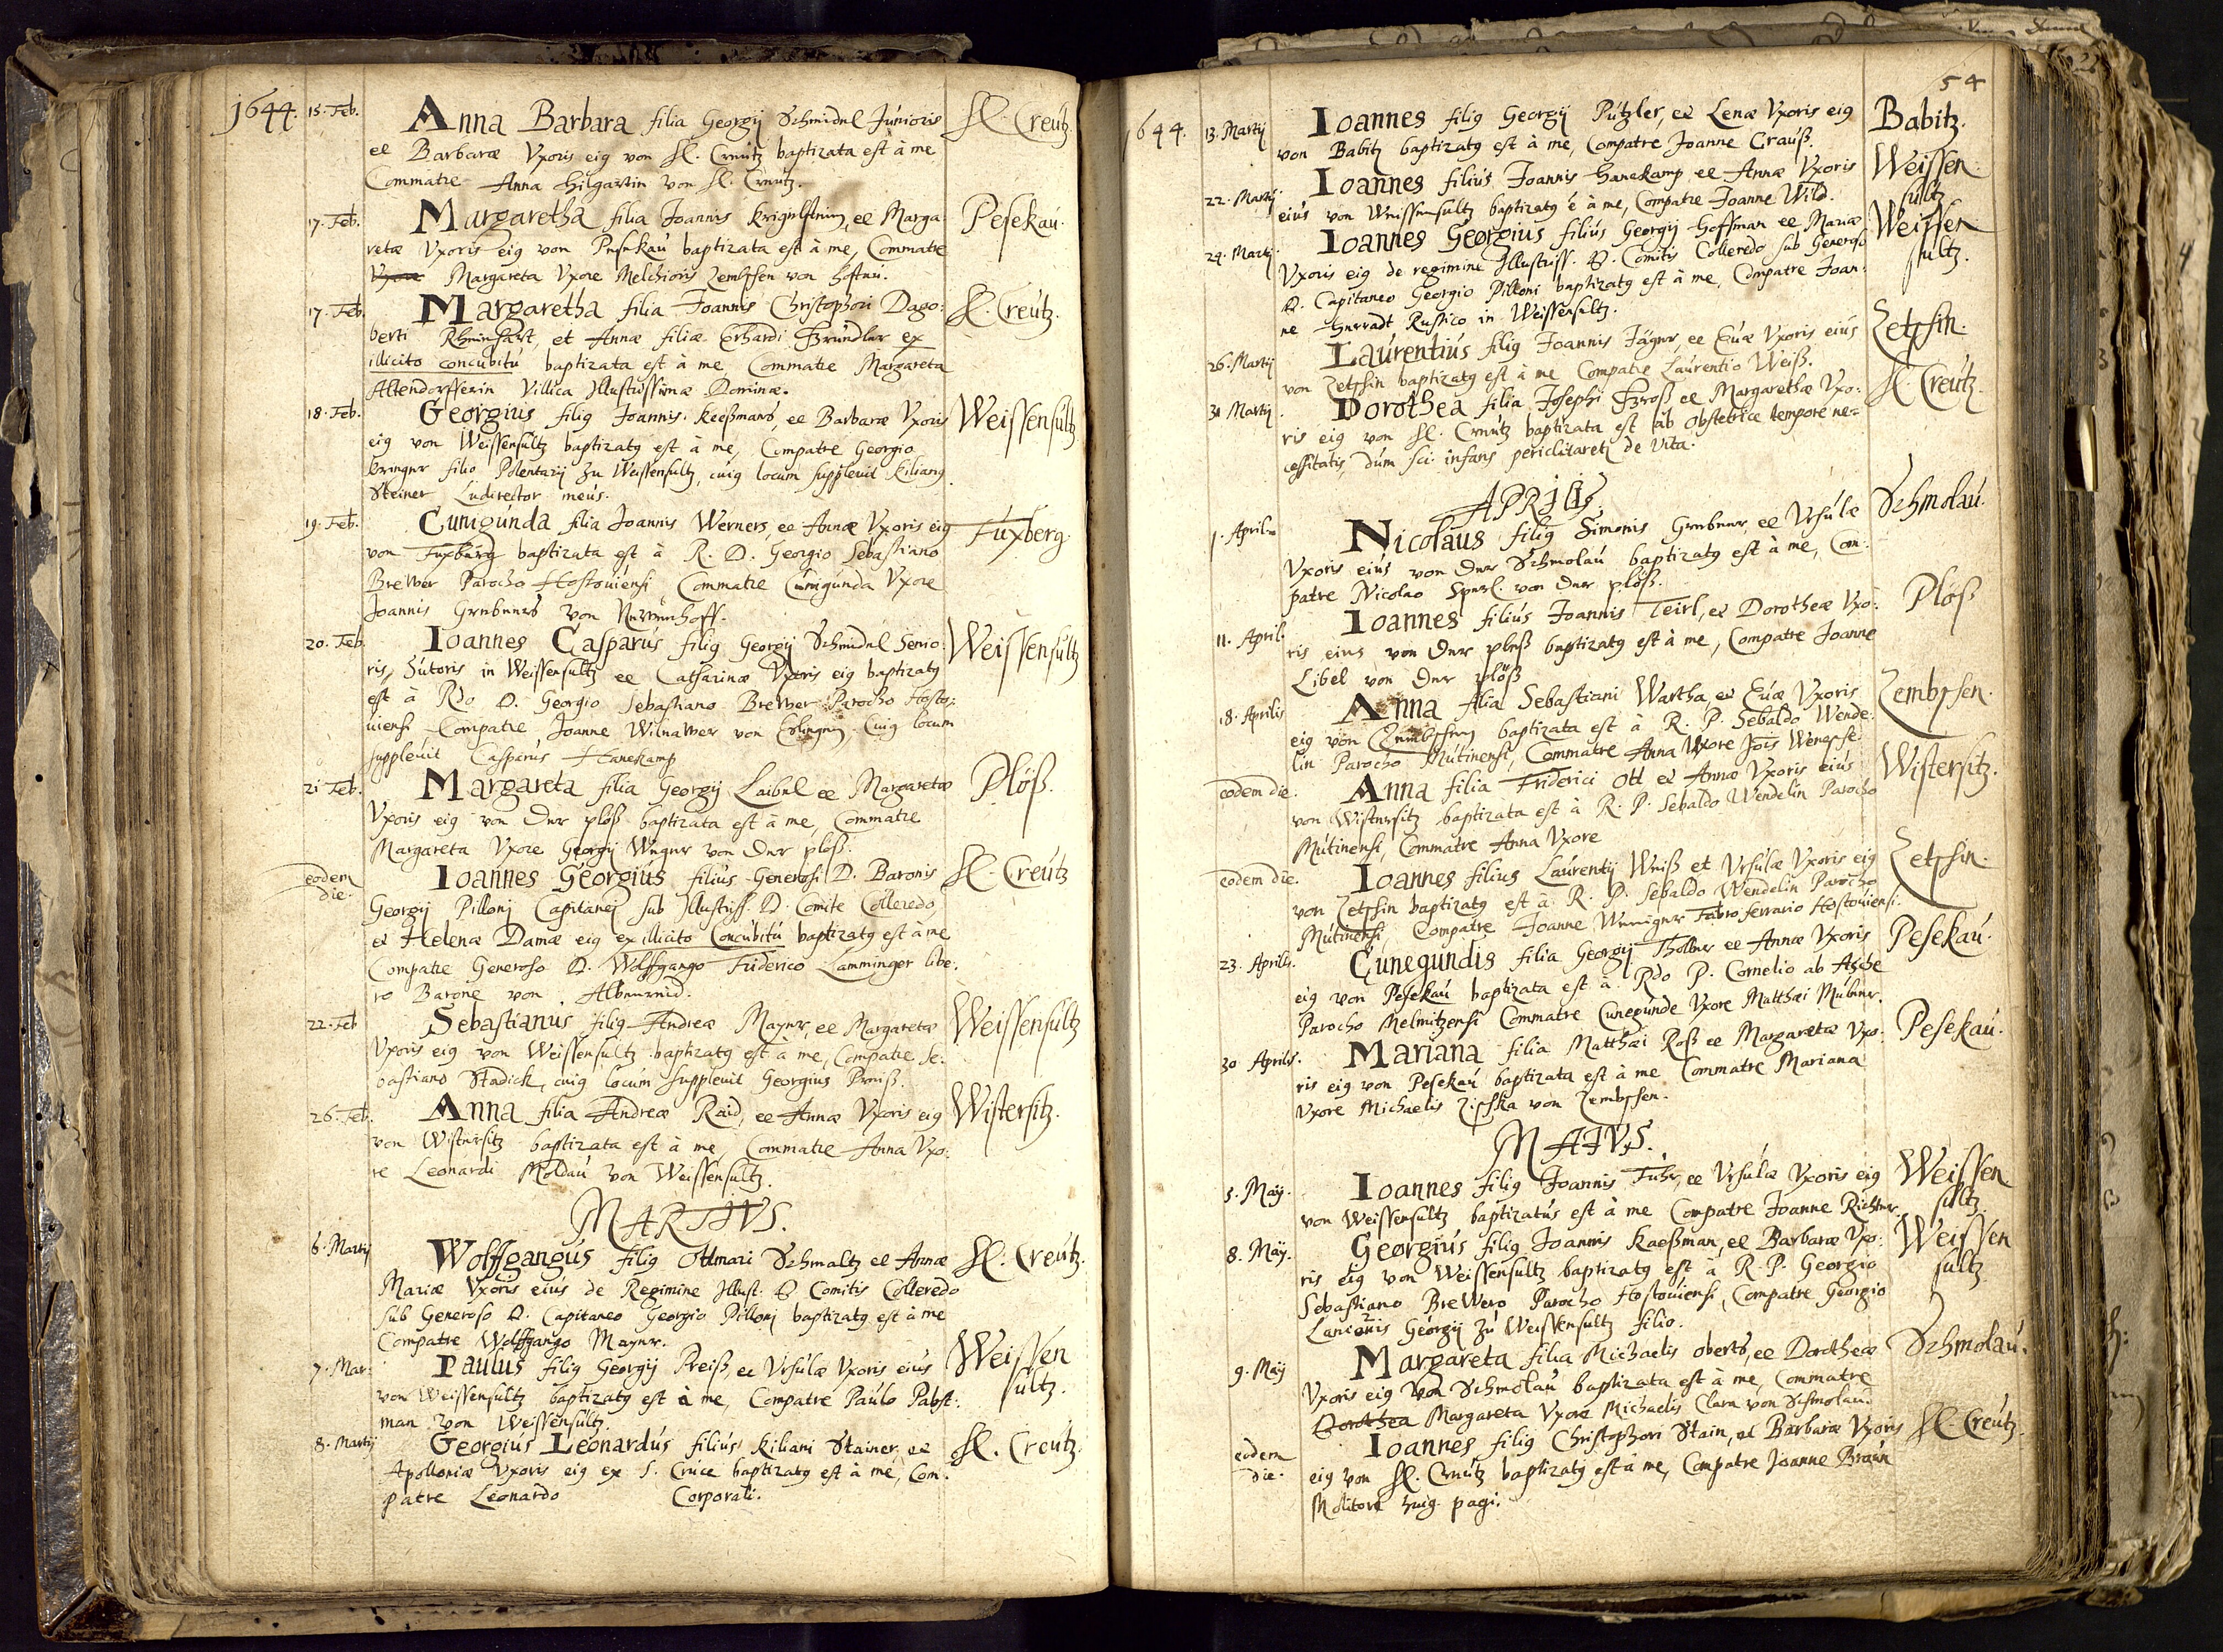 1644. 15. Feb. Anna Barbara filia Georgij Schmidel Junioris Hl. Creutz.
et Barbaræ Vxoris eiꝰ von Hl. Creutz baptizata est à me
Commatre Anna Hilgartin von Hl. Creutz.
17. Feb. Margaretha filia Joannis et Marga Pesekau.
retæ Vxoris eiꝰ von Pesekau baptizata est à me, Commatre
Vxore Margareta Vxore Melchioris Zembschen von
17. Feb. Margaretha filia Joannis Christophori Dago: Hl. Creutz.
berti Rheinhart, et Annæ filiæ Erhardi Gründler ex
illicito concubitu baptizata est à me, Commatre Margareta
Altendorfferin Villica Illustrissimæ Dominæ.
18. Feb. Georgius filiꝰ Joannis Keeßmans, et Barbaræ Vxoris Weissensultz
eiꝰ von Weissensultz baptizatꝰ est à me, Compatre Georgio
filio Polentarij zu Weissensultz, cuiꝰ locum suppleuit Kilianꝰ
Steiner Ludirector meus.
19. Feb. Cunigunda filia Joannis Werners, et Annæ Vxoris eiꝰ Fuxberg.
von Fuxberg baptizata est à R. D. Georgio Sebastiano
Brewer Parocho Hostouiensi, Commatre Cunigunda Vxore
Joannis Grebners von
20. Feb. Ioannes Casparus filiꝰ Georgij Schmidel Senio: Weissensultz
ris, Sutoris in Weissensultz et Catharinæ Vxoris eiꝰ baptizatꝰ
est à Rdo D. Georgio Sebastiano Brewer Parocho Hosto:
uiensi Compatre Joanne Wilnawer von Cuiꝰ locum
suppleuit Casparus Hanekamp
21 Feb. Margareta filia Georgij Laibel et Margaretæ Plöß.
Vxoris eiꝰ von der plöß baptizata est à me, Commatre
Margareta Vxore Georgij Weger von der plöß.
eodem die. Ioannes Georgius filius Generosi D. Baronis Hl. Creutz
Georgij Pillonj Capitanej sub Illustriss. D. Comite Colleredo,
et Helenæ Damæ eiꝰ ex illicito Concubitu baptizatꝰ est à me
Compatre Generoso D. Wolffgango Friderico Lamminger libe:
ro Barone von Albenreid.
22. Feb Sebastianus filiꝰ Andreæ Mayer, et Margaretæ Weissensultz
Vxoris eiꝰ von Weissensultz baptizatꝰ est à me, Compatre Se:
bastiano Stadick, cuiꝰ locum suppleuit Georgius Preiß.
26. Feb. Anna filia Andreæ Raid, et Annæ Vxoris eiꝰ Wistersitz.
von Wistersitz baptizata est à me, Commatre Anna Vxo:
re Leonardi Moldau von Weissensultz.
MARTIVS.
6. Martij Wolffgangus filiꝰ Ottmari Schmaltz et Annæ Hl. Creutz.
Mariæ Vxoris eius de Regimine Illust: D. Comitis Colleredo
sub Generoso D. Capitaneo Georgio Pillonj baptizatꝰ est à me
Compatre Wolffgango Mayer.
7. Mar: Paulus filiꝰ Georgij Preiß, et Vrsulæ Vxoris eius Weissen
von Weissensultz baptizatꝰ est à me, Compatre Paulo Pabst: sultz.
man von Weissensultz.
8. Martij Georgius Leonardus filius Kiliani Stainer, et Hl. Creutz.
Apolloniæ Vxoris eiꝰ ex S. Cruce baptizatꝰ est à me, Com:
patre Leonardo Corporali.
54
1644. 13. Martij Ioannes filiꝰ Georgij Pützler, et Lenæ Vxoris eiꝰ Babitz.
von Babitz baptizatꝰ est à me, Compatre Joanne Crauß.
22. Martij Ioannes filius Joannis Hanekamp et Annæ Vxoris Weissen
eius von Weissensultz baptizatꝰ ē à me, Compatre Joanne Wild. sultz
24. Martij Ioannes Georgius filius Georgij Hoffman et Mariæ Weissen
Vxoris eiꝰ de regimine Illustriss. D. Comitis Colleredo sub Generoso sultz.
D. Capitaneo Georgio Pilloni baptizatꝰ est à me, Compatre Joan:
ne Rustico in Weissensultz.
26. Martij Laurentius filiꝰ Joannis Jäger, et Euæ Vxoris eius Zetschin.
von Zetschin baptizatꝰ est à me Compatre Laurentio Weiß.
31 Martij. Dorothea filia Josephi Groß et Margarethæ Vxo: Hl. Creutz.
ris eiꝰ von Hl. Creutz baptizata est ab obstetrice tempore ne=
cessitatis, dum sci: infans periclitaret de vita.
APRILIS
1. Aprilis Nicolaus filiꝰ Simonis Grebner, et Vrsulæ Schmolau.
Vxoris eius von der Schmolau baptizatꝰ est à me, Com:
patre Nicolao Sperl. von der plöß.
11. April. Ioannes filius Joannis Teirl, et Dorotheæ Vxo: Plöß
ris eius von der pleß baptizatꝰ est à me, Compatre Joanne
Libel von der plöß
18. Aprilis Anna filia Sebastiani Wartha, et Euæ Vxoris Zembschen.
eiꝰ von Zembschen baptizata est à R. P. Sebaldo Wende:
lin Parocho Mutinensi, Commatre Anna Vxore Jois
eodem die. Anna filia Friderici Ott et Annæ Vxoris eius Wistersitz.
von Wistersitz baptizata est à R. P. Sebaldo Wendelin Parocho
Mutinensi, Commatre Anna Vxore
eodem die. Ioannes filius Laurentij Weiß et Vrsulæ Vxoris eiꝰ Zetschin.
von Zetschin baptizatꝰ est à R. P. Sebaldo Wendelin Parocho
Mutinensi, Compatre Joanne Fabro ferrario Hostouiensi.
23. Aprilis. Cunegundis filia Georgij Thollner et Annæ Vxoris Pesekau.
eiꝰ von Pesekau baptizata est à Rdo P. Cornelio ab
Parocho Melmitzensi Commatre Cunegunde Vxore Matthæi
30 Aprilis. Mariana filia Matthæi Roß et Margaretæ Vxo: Pesekau.
ris eiꝰ von Pesekau baptizata est à me Commatre Mariana
Vxore Michaelis Zischka von Zembschen.
MAIVS.
5. Maij. Ioannes filiꝰ Joannis Fuhr, et Vrsulæ Vxoris eiꝰ Weissen
von Weissensultz baptizatus est à me Compatre Joanne Richter. sultz.
8. Maij. Georgius filiꝰ Joannis Kaeßman, et Barbaræ Vxo: Weissen
ris eiꝰ von Weissensultz baptizatꝰ est à R. P. Georgio sultz
Sebastiano Brewero Parocho Hostouiensi, Compatre Georgio
Lanionis Georgij zu Weissensultz filio.
9. Maij Margareta filia Michaelis oberts, et Dorotheæ Schmolau.
Vxoris eiꝰ von Schmolau baptizata est à me, Commatre
Dorothea Margareta Vxore Michaelis Clara von Schmolau.
eodem die. Ioannes filiꝰ Christophori Stain, et Barbaræ Vxoris Hl. Creutz.
eiꝰ von Hl. Creutz baptizatꝰ est à me, Compatre Joanne Braun
Molitore huiꝰ pagi.